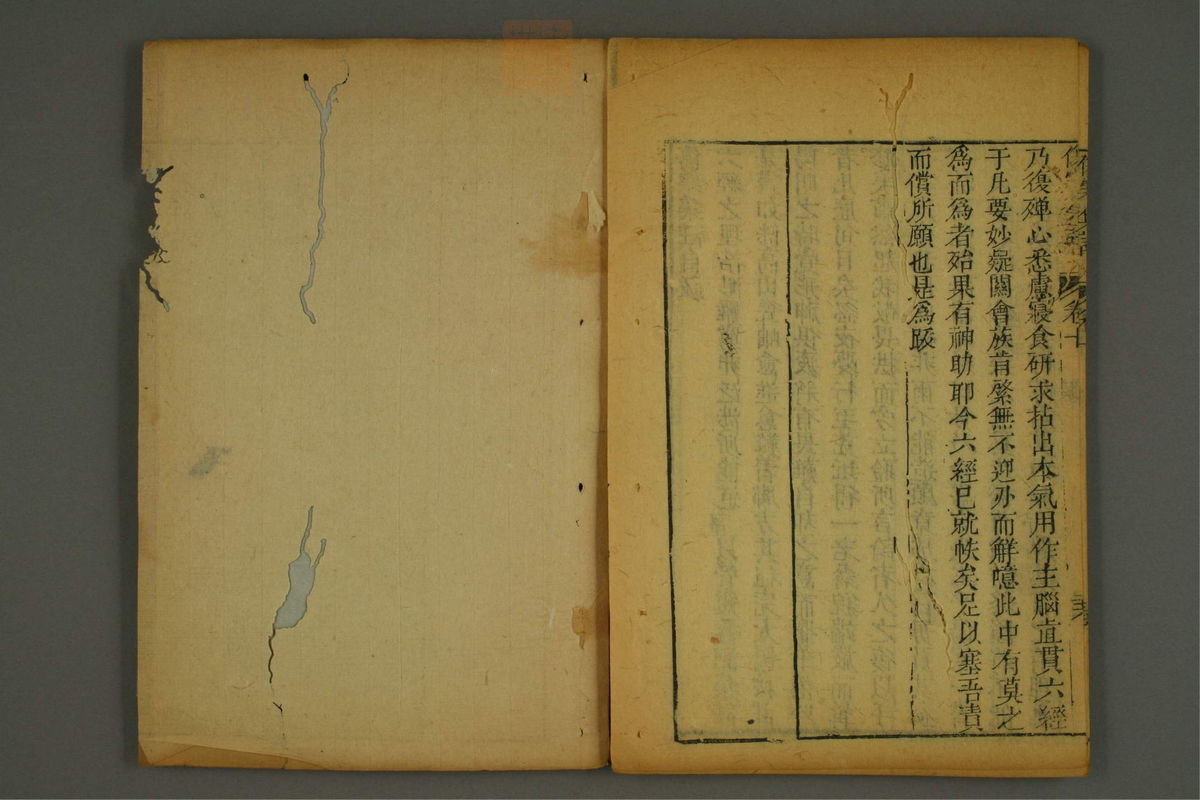 乃復殫心悉慮寢食研求拈出本氣用作主腦直貫六經
于凡要妙疑關會族肯綮無不迎刃而解噫此中有莫之
為而為者殆果有神助耶今六經已就帙矣足以塞吾責
而償所願也是為跋
卷十